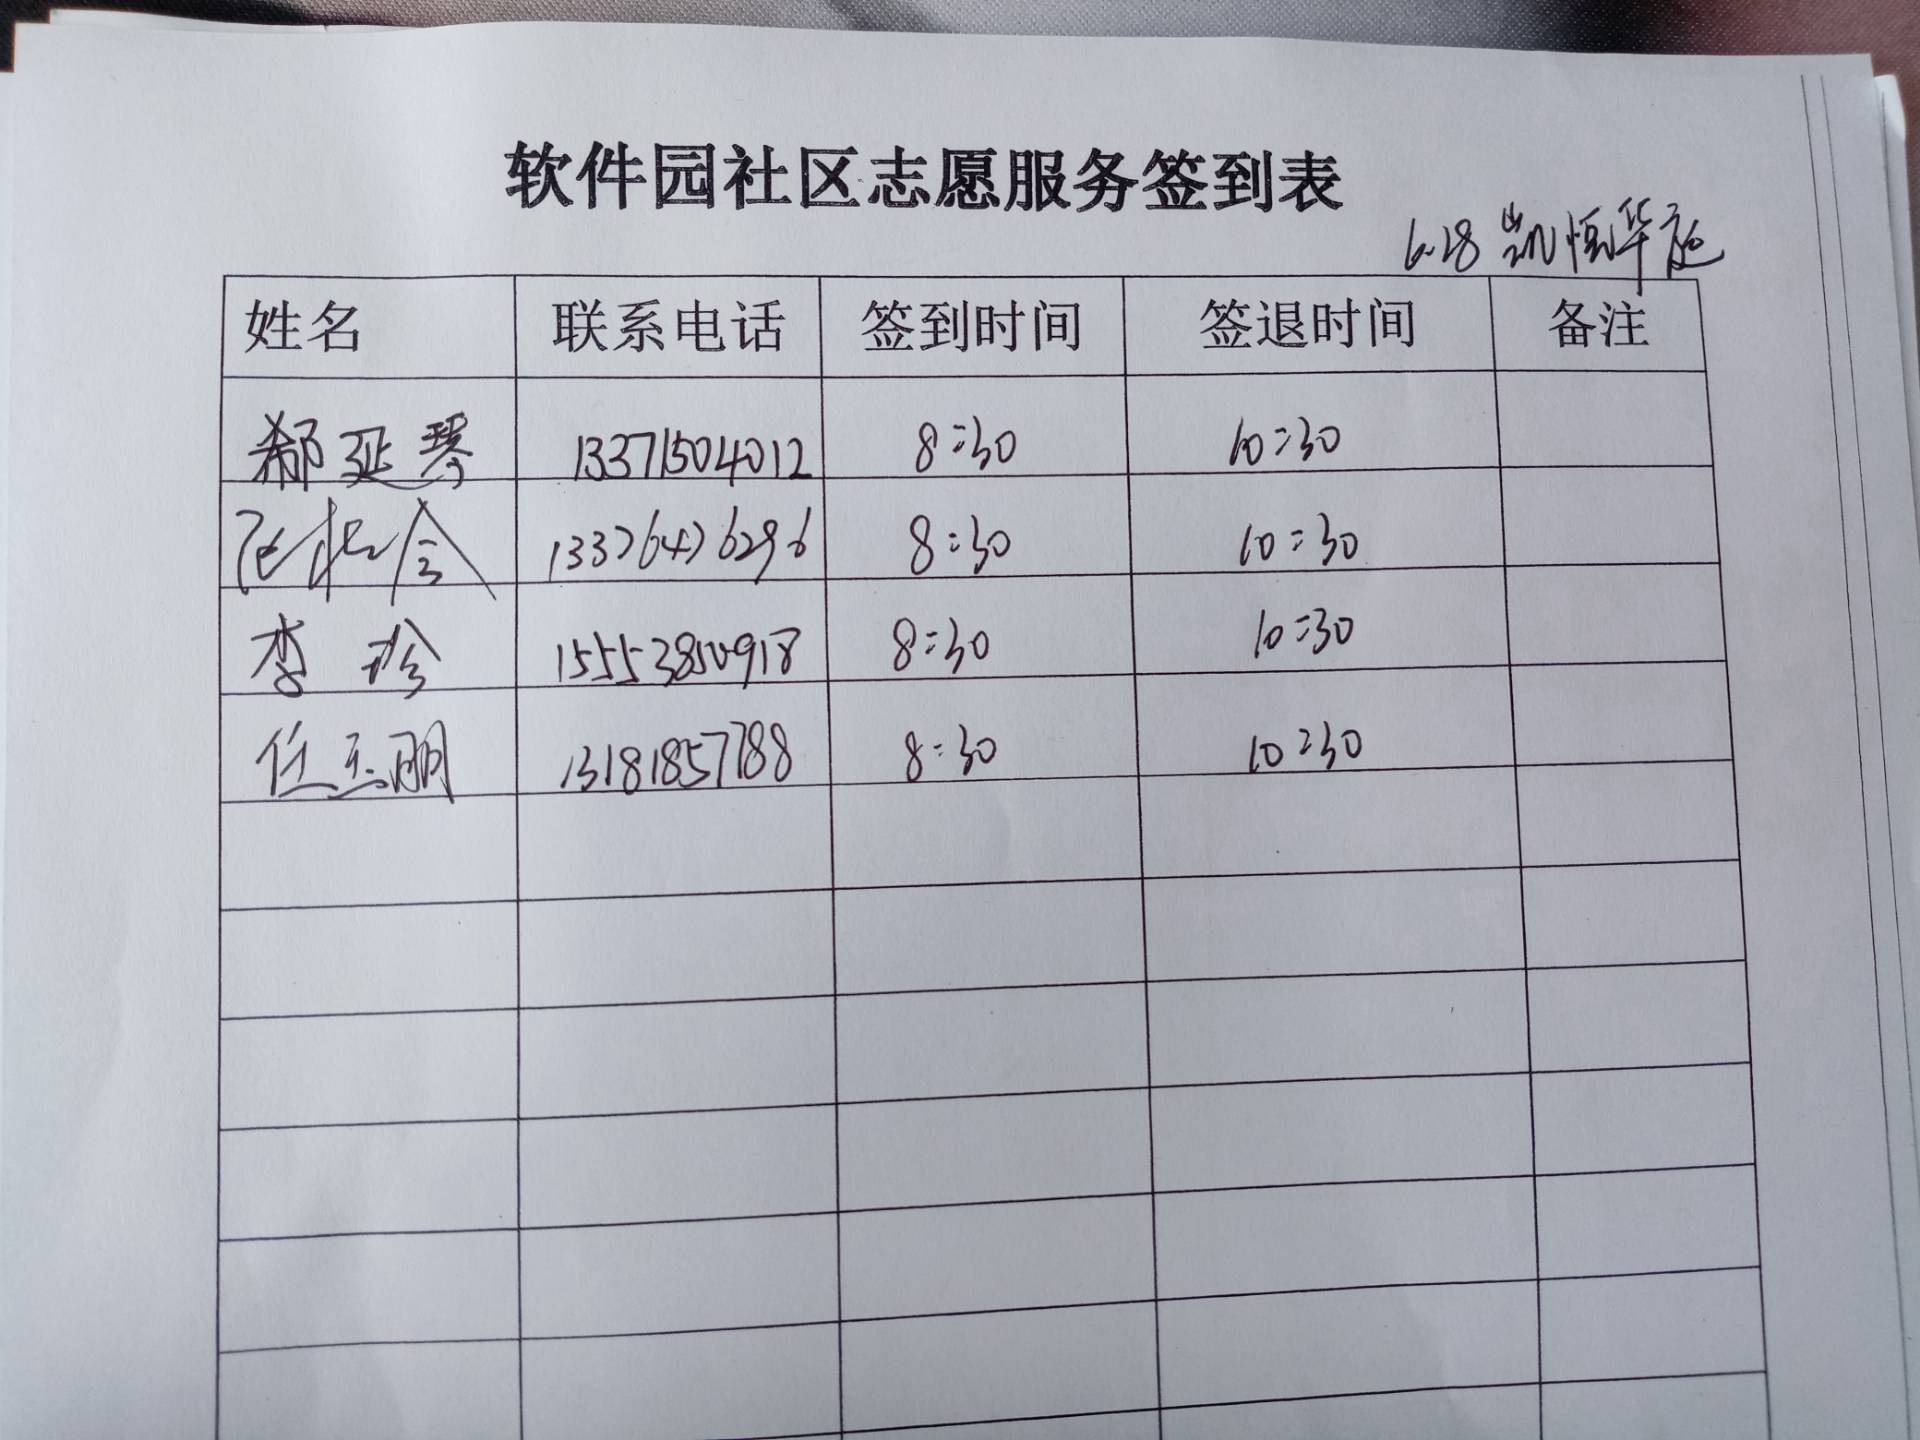 软件园社区志愿服务签到表
6.28 凯恒华庭
姓名 联系电话 签到时间 签退时间 备注
郗延琴 13371504012 8:30 10:30
13376476296 8:30 10:30
李珍 15553850918 8:30 10:30
任玉朋 13181857788 8:30 10:30